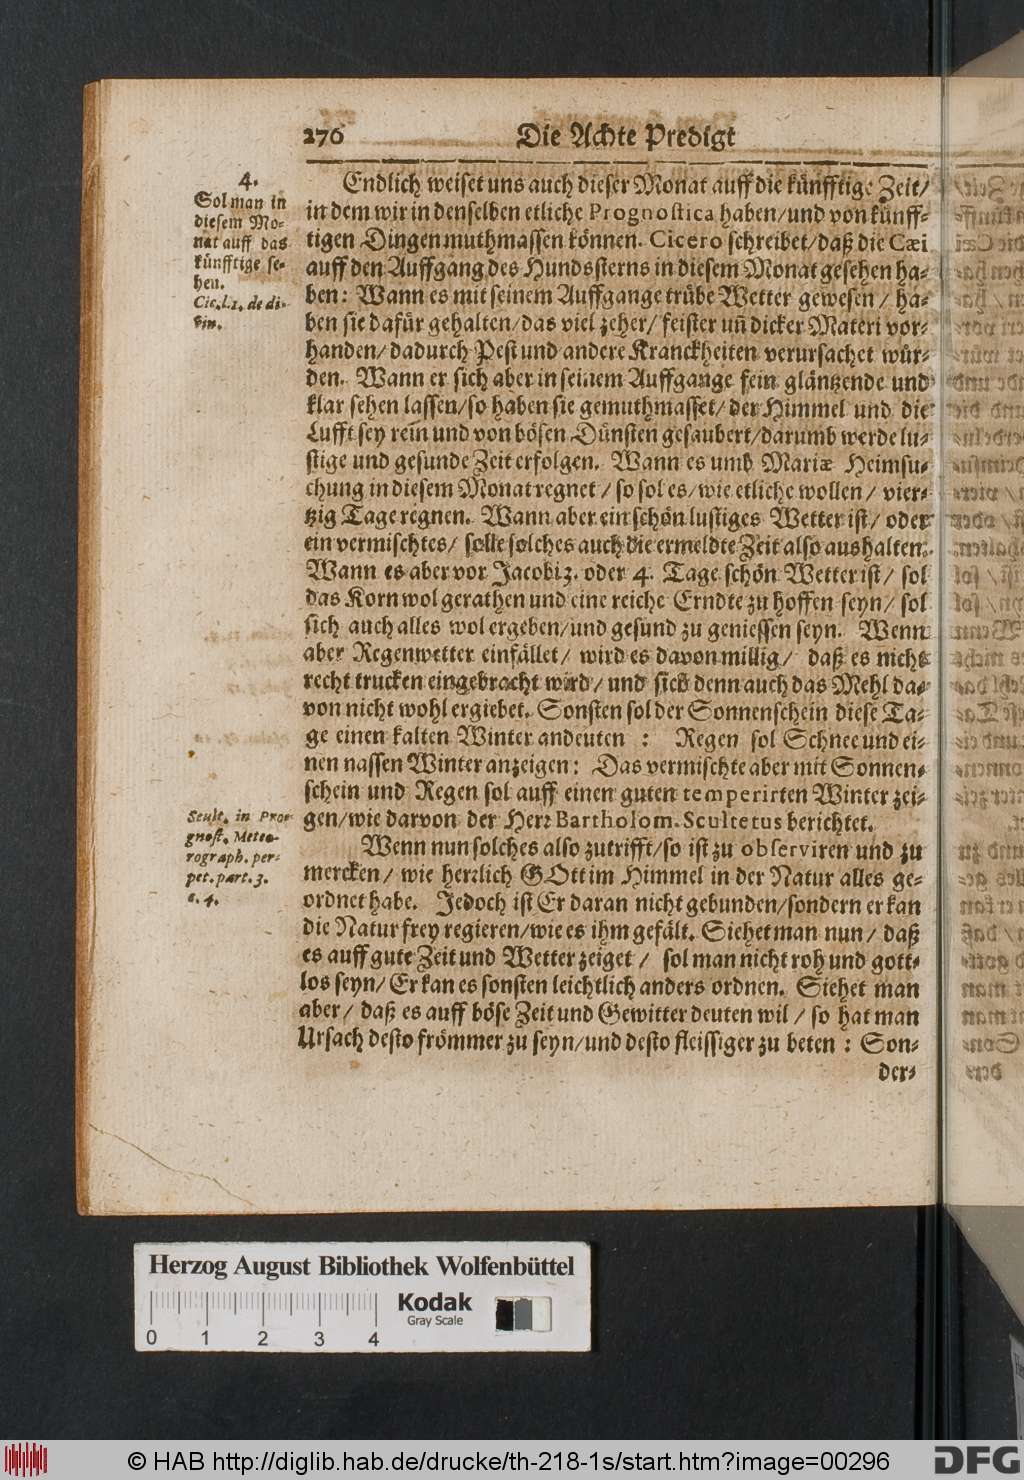 276 Die Achte Predigt
4.
Sol man in
diesem Mo-
nat auff das
künfftige se-
hen.
Cic. l. 1. de di-
vin.
Endlich weiset uns auch dieser Monat auff die künfftige Zeit/
in dem wir in denselben etliche Prognostica haben/und von künff-
tigen Dingen muthmassen können. Cicero schreibet/daß die Cæi
auff den Auffgang des Hundssterns in diesem Monat gesehen ha-
ben: Wann es mit seinem Auffgange trübe Wetter gewesen/ ha-
ben sie dafür gehalten/das viel zeher/ feister uñ dicker Materi vor-
handen/ dadurch Pest und andere Kranckheiten verursachet wür-
den. Wann er sich aber in seinem Auffgange fein gläntzende und
klar sehen lassen/so haben sie gemuthmasset/ der Himmel und die
Lufft sey rein und von bösen Dünsten gesaubert/darumb werde lu-
stige und gesunde Zeit erfolgen. Wann es umb Mariæ Heimsu-
chung in diesem Monat regnet/ so sol es/wie etliche wollen/ vier-
tzig Tage regnen. Wann aber ein schön lustiges Wetter ist/ oder
ein vermischtes/ solle solches auch die ermeldte Zeit also aushalten.
Wann es aber vor Jacobi 3. oder 4. Tage schön Wetter ist/ sol
das Korn wol gerathen und eine reiche Erndte zu hoffen seyn/ sol
sich auch alles wol ergeben/und gesund zu geniessen seyn. Wenn
aber Regenwetter einfället/ wird es davon millig/ daß es nicht
recht trucken eingebracht wird/ und sich denn auch das Mehl da-
von nicht wohl ergiebet. Sonsten sol der Sonnenschein diese Ta-
ge einen kalten Winter andeuten : Regen sol Schnee und ei-
nen nassen Winter anzeigen: Das vermischte aber mit Sonnen-
schein und Regen sol auff einen guten temperirten Winter zei-
gen/wie darvon der Herr Bartholom. Scultetus berichtet.
Scult. in Pro-
gnost. Meteo-
rograph. per-
pet. part. 3.
c. 4.
Wenn nun solches also zutrifft/so ist zu observiren und zu
mercken/ wie herrlich GOtt im Himmel in der Natur alles ge-
ordnet habe. Jedoch ist Er daran nicht gebunden/sondern er kan
die Natur frey regieren/wie es ihm gefält. Siehet man nun/ daß
es auff gute Zeit und Wetter zeiget/ sol man nicht roh und gott-
los seyn/ Er kan es sonsten leichtlich anders ordnen. Siehet man
aber/ daß es auff böse Zeit und Gewitter deuten wil/ so hat man
Ursach desto frömmer zu seyn/und desto fleissiger zu beten : Son-
der-
Herzog August Bibliothek Wolfenbüttel
Kodak
Gray Scale
0 1 2 3 4
© HAB http://diglib.hab.de/drucke/th-218-1s/start.htm?image=00296
DFG